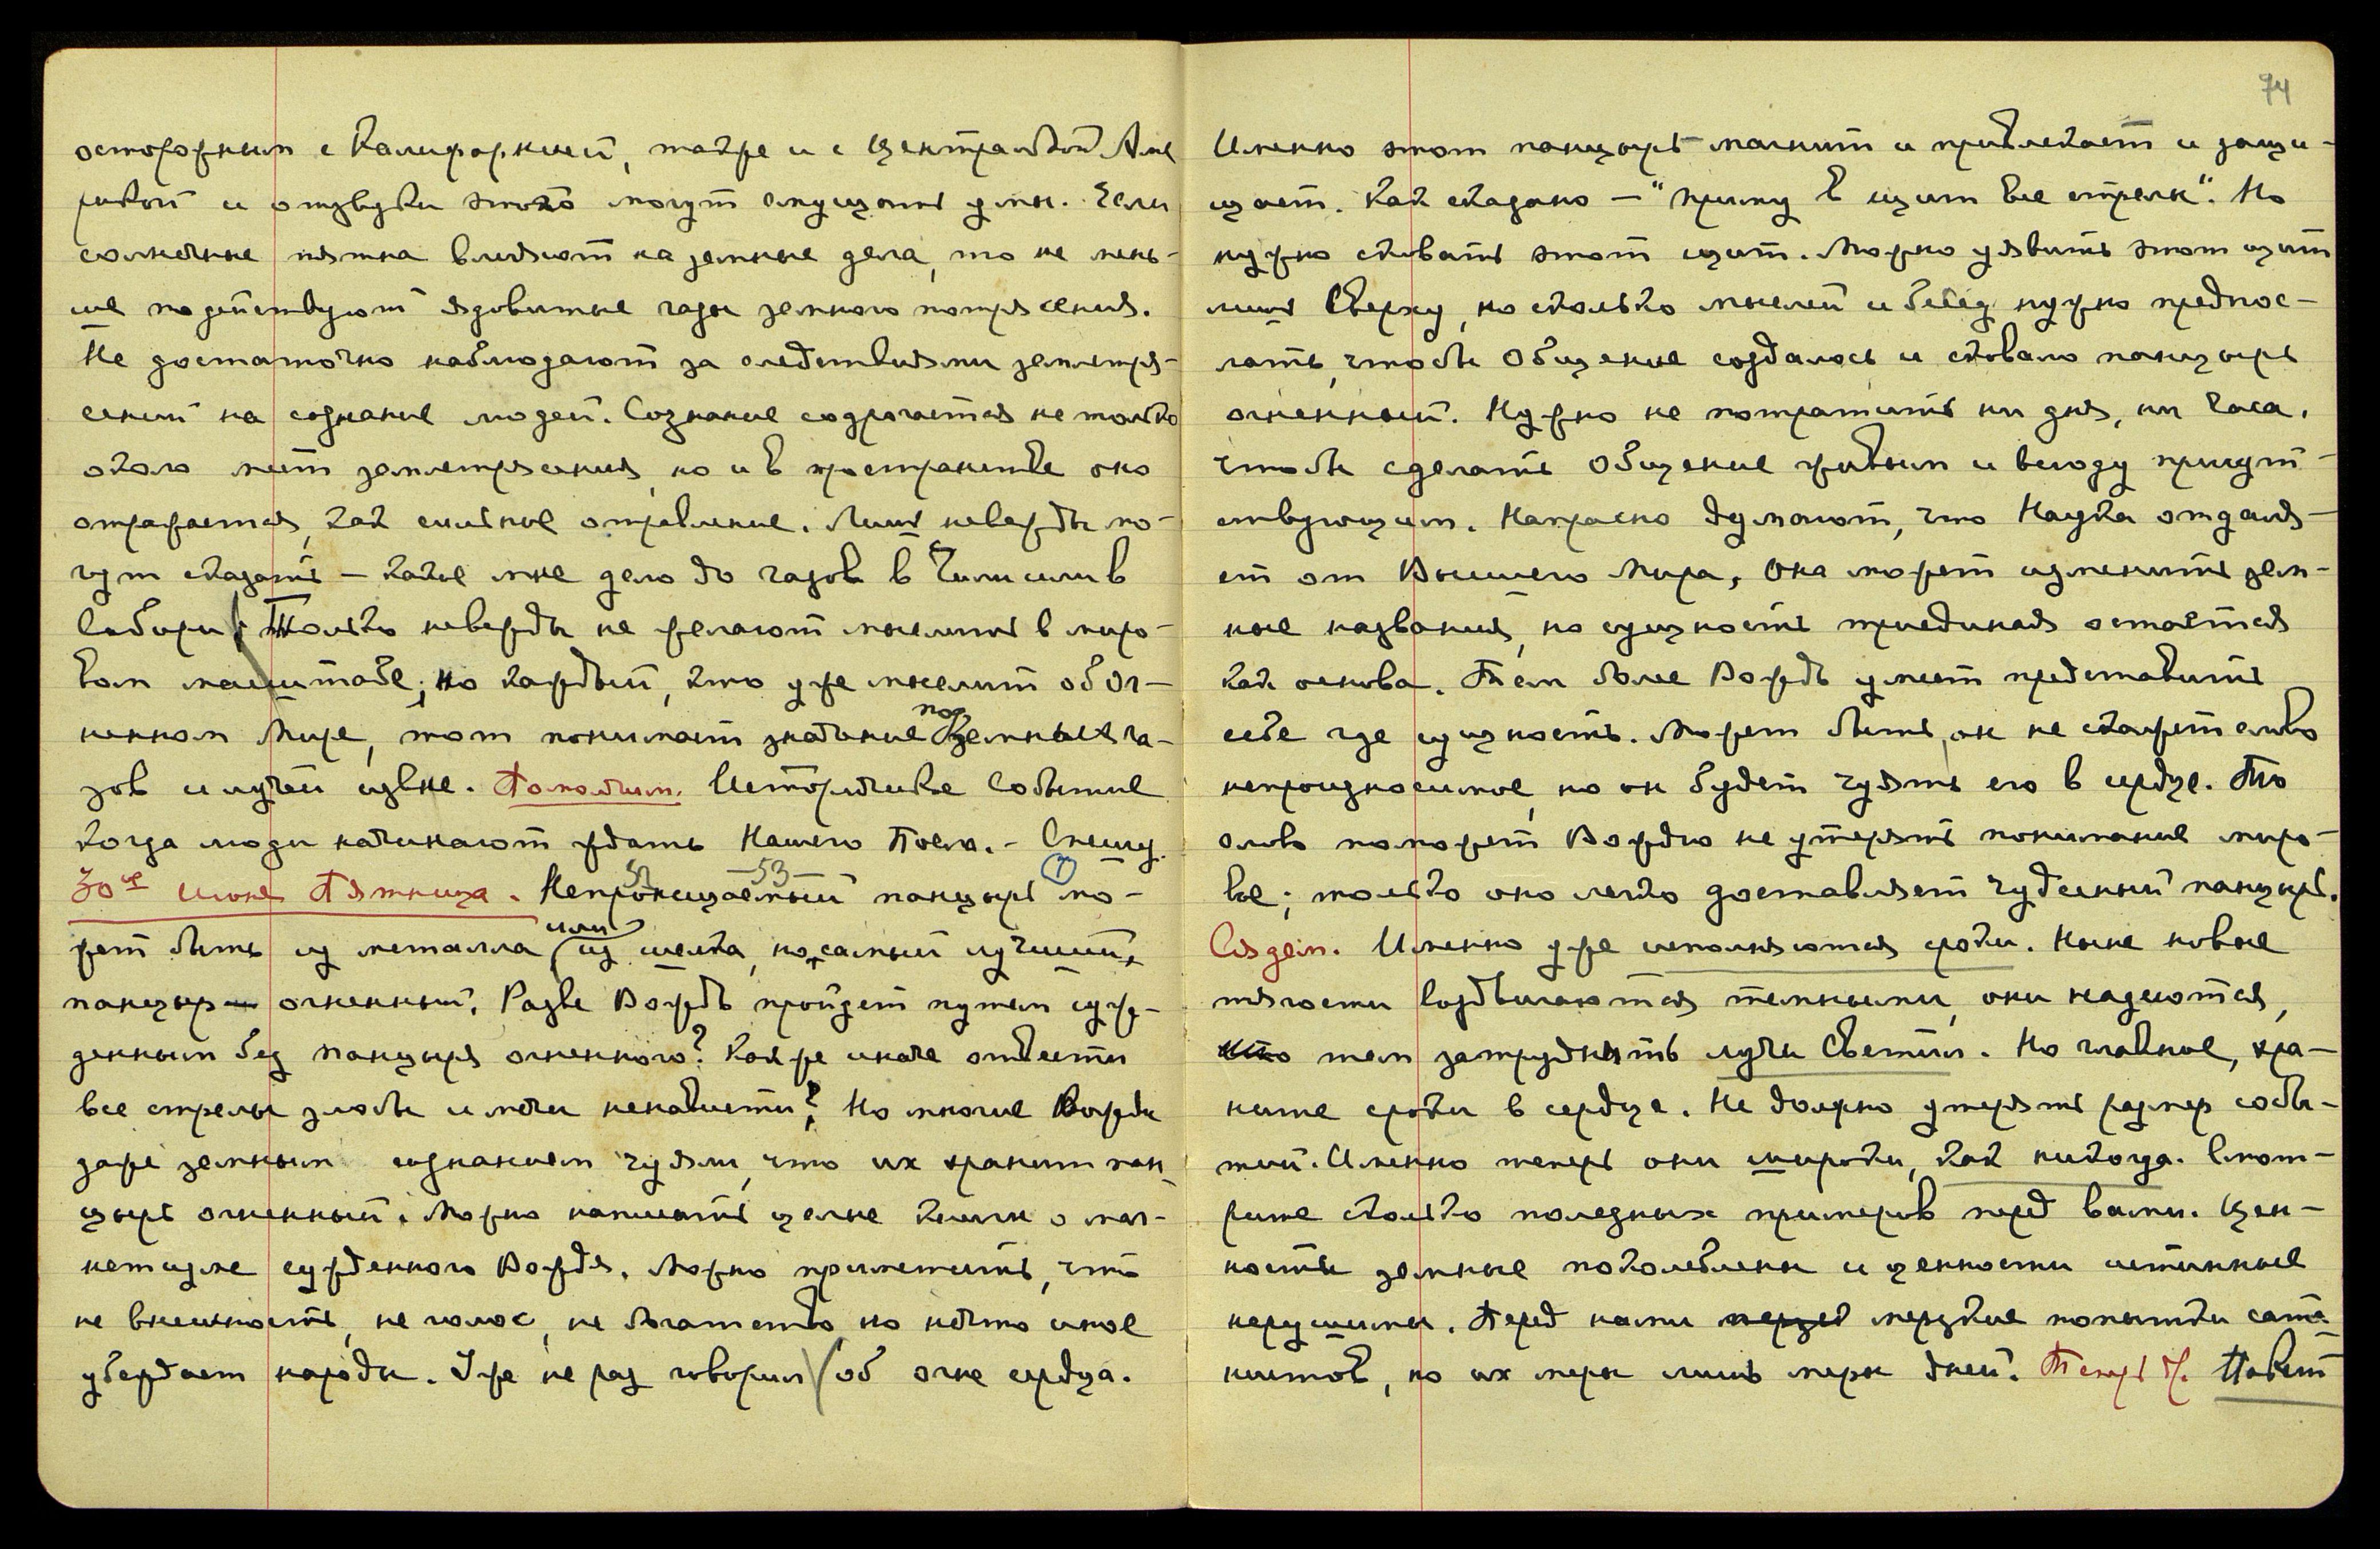 осторожным с Калифорнией, также и с Централькой Аме
рикой и отзвуки этого могут смущать умы. Если
солнечные пятна влияют на земные дела, то не мень-
ше подействуют ядовитые газы земного потрясения.
Не достаточно наблюдают за следствиями землетря-
сений на сознание людей. Сознание содрогается не только
около мест землетрясения, но и в пространстве оно
отражается, как сильное отравление. Лишь невежды мо-
гут сказать – какое мне дело до газов в Чили или в
Сибири. Только невежды не желают мыслить в миро-
вом масштабе; но каждый, кто уже мыслит об Ог-
ненном Мире, тот понимает значение подземных га-
зов и лучей извне. Помолчим. Историческое событие
когда люди начинают ждать Нашего Посла. – Спешу.
30ое июня Пятница. Непроницаемый панцырь мо-
52 – 53 – 7
жет быть из металла или из шелка, но самый лучший,
панцырь огненный. Разве Вождь пройдет путем суж-
денным без панцыря огненного? Как же иначе отвести
все стрелы злобы и мечи ненависти? Но многие Вожди
даже земным сознанием чуяли, что их хранит пан
цырь огненный. Можно написать целые книги о маг-
нетизме сужденного Вождя. Можно приметить, что
не внешность, не голос, не богатство, но нечто иное
убеждает народы. Уже не раз говорил об огне сердца.
74
Именно этот панцырь магнит и привлекает и защи-
щает. Как сказано – "приму в щит все стрелы". Но
нужно сковать этот щит. Можно уявить этот щит
лишь Сверху, но сколько мыслей и бесед нужно предпос-
лать, чтобы Общение создалось и сковало панцырь
огненный. Нужно не потратить ни дня, ни часа,
чтобы сделать Общение живым и всюду присут-
ствующим. Напрасно думают, что Наука отдаля-
ет от Высшего Мира, Она может изменить зем-
ные названия, но сущность триединая остается
как основа. Тем более Вождь умеет представить
себе где сущность. Может быть, он не скажет слово
непроизносимое, но он будет чуять его в сердце. То
слово поможет Вождю не утерять понимание миро-
вое; только оно легко доставляет чудесный панцырь.
Сядем. Именно уже исполняются сроки. Ныне новые
тягости воздвигаются темными, они надеются,
что тем затруднить лучи Светил. Но главное, хра-
ните сроки в сердце. Не должно утерять размер собы-
тий. Именно теперь они широки, как никогда. Смот-
рите сколько полезных примеров перед вами. Цен-
ности земные поколеблены и ценности истинные
нерушимы. Перед нами мерзкие попытки сата-
нистов, но их меры лишь меры дней. Теперь Ж. Пошлет